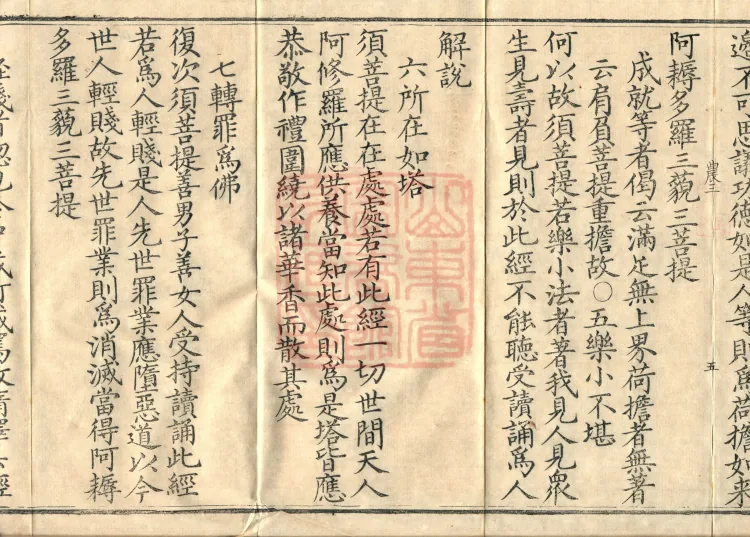 邊不可思議功德如是人等則爲荷擔如来
農三 五
阿耨多羅三藐三菩提
成就等者偈云滿足無上界荷擔者無著
云肩負菩提重擔故○五樂小不堪
何以故須菩提若樂小法者著我見人見衆
生見壽者見則於此經不能聽受讀誦爲人
解說
六所在如塔
須菩提在在處處若有此經一切世間天人
阿修羅所應供養當知此處則爲是塔皆應
恭敬作禮圍繞以諸華香而散其處
七轉罪爲佛
復次須菩提善男子善女人受持讀誦此經
若爲人輕賤是人先世罪業應墮惡道以今
世人輕賤故先世罪業則爲消滅當得阿耨
多羅三藐三菩提